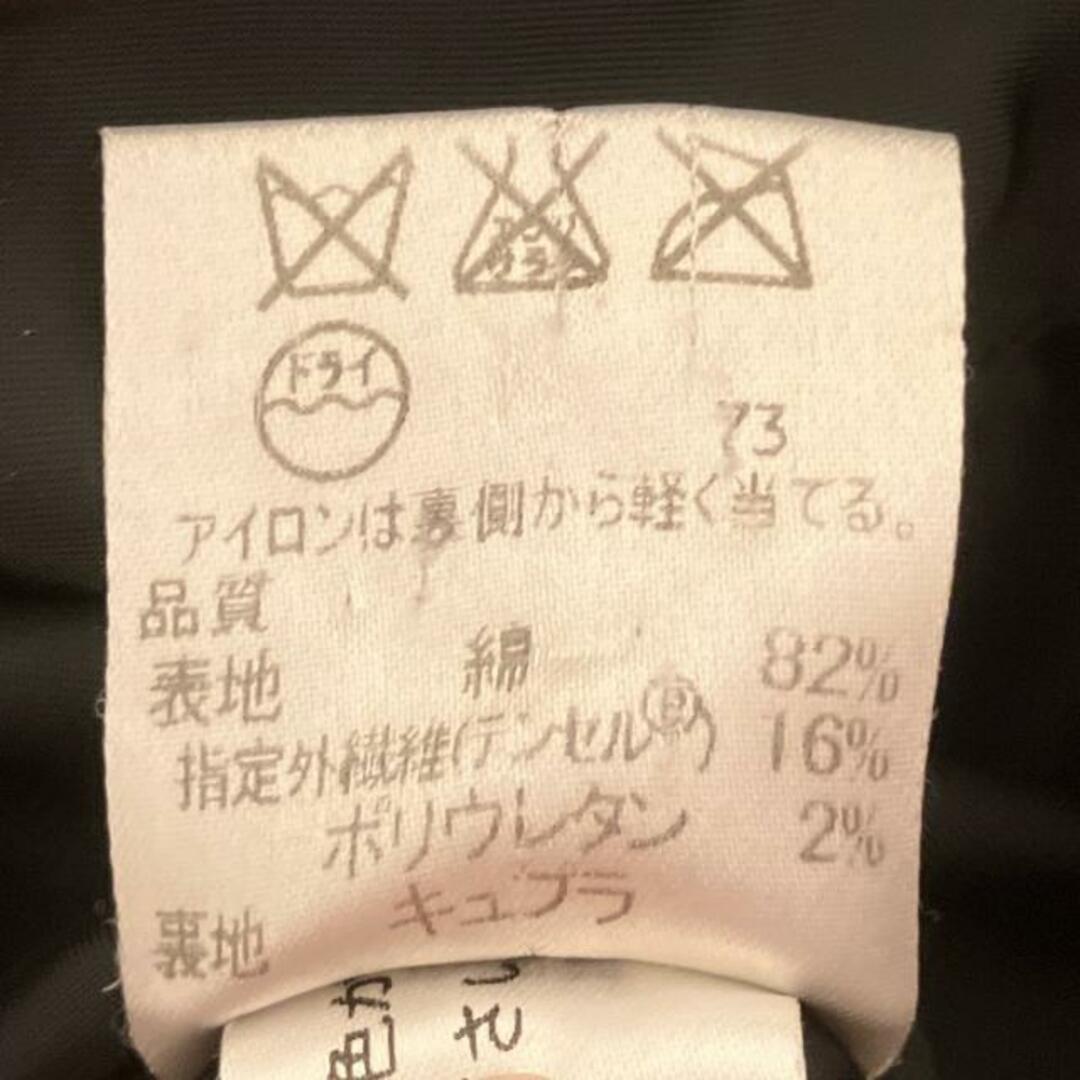 エンソ
サラシ
ドライ
73
アイロンは裏側から軽く当てる。
品質
表地 綿 82%
指定外繊維(テンセル®) 16%
ポリウレタン 2%
裏地 キュプラ